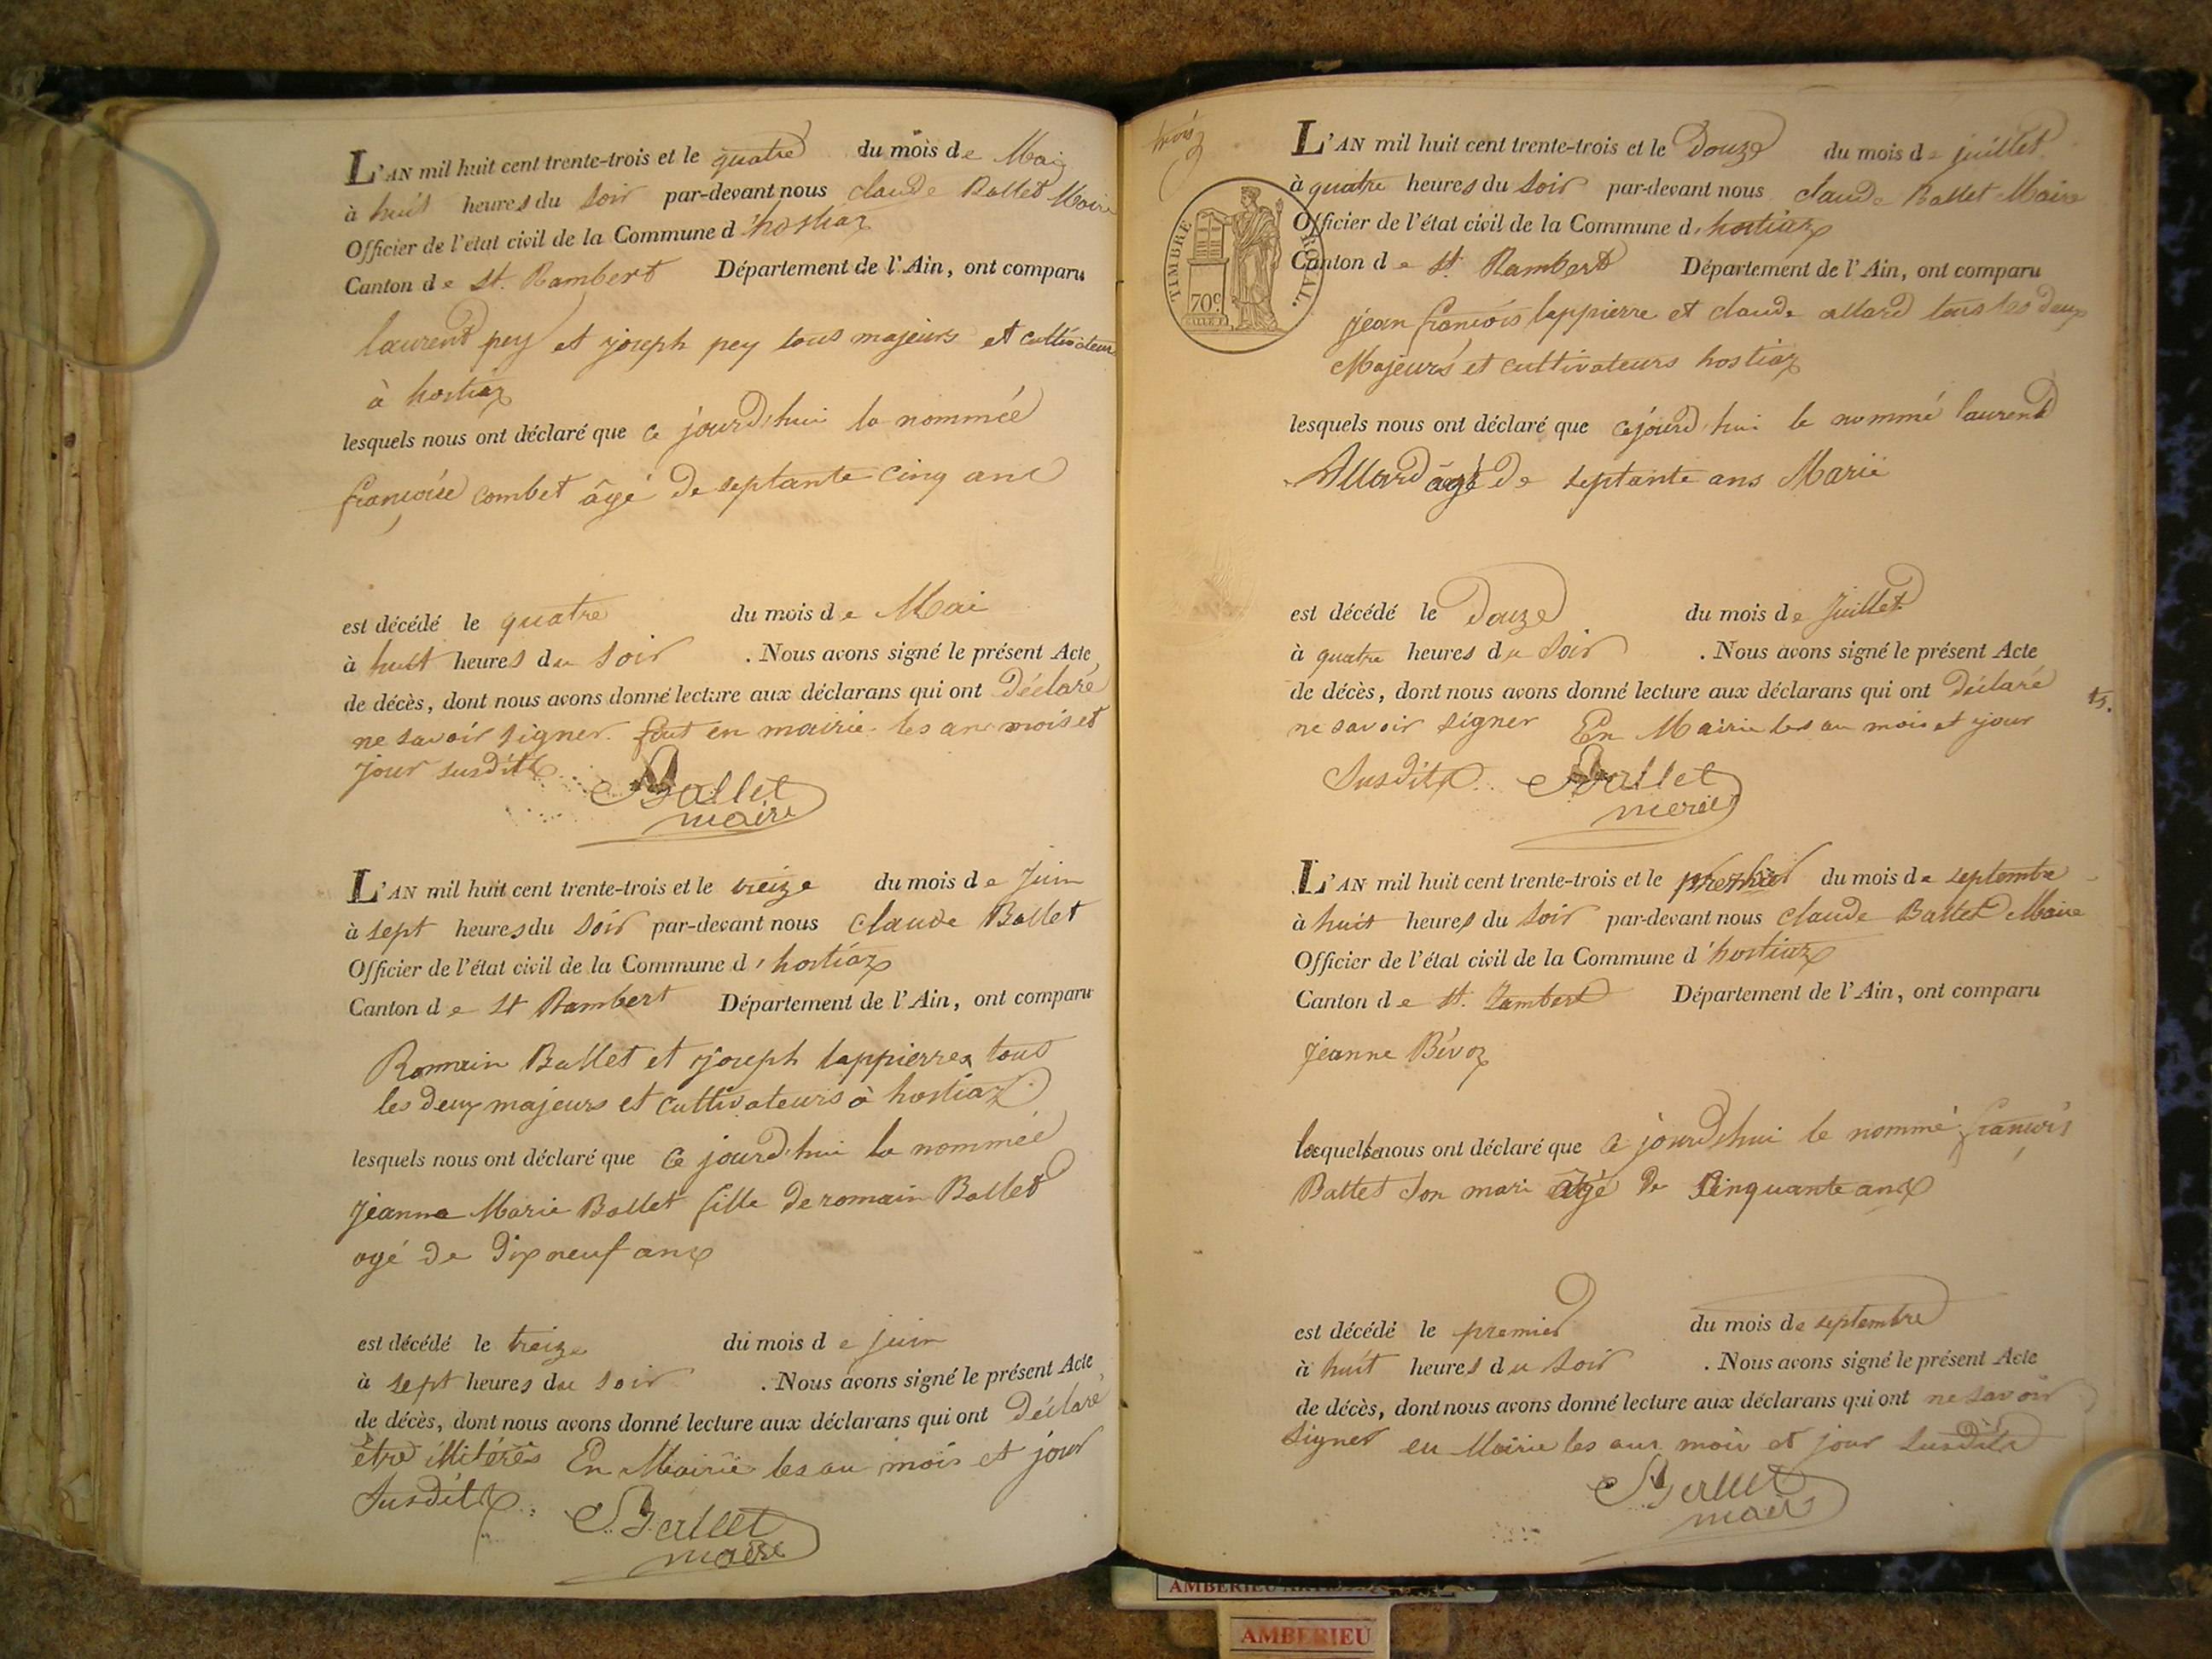 L'AN mil huit cent trente-trois et le quatre du mois de Mai
à huit heures du soir par-devant nous claude Ballet Maire
Officier de l'état civil de la Commune d'hostiaz
Canton de St. Rambert Département de l'Ain, ont comparu
laurent pey et joseph pey tous majeurs et cultivateur
à hostiaz
lesquels nous ont déclaré que ce jourd'hui la nommée
françoise combet âgé de septante cinq ans
est décédé le quatre du mois de Mai
à huit heures du soir . Nous avons signé le présent Acte
de décès, dont nous avons donné lecture aux déclarans qui ont Déclaré
ne savoir signer. fait en mairie les an mois et
jour susdits
Ballet
maire
L'AN mil huit cent trente-trois et le treize du mois de Juin
à sept heures du soir par-devant nous claude Ballet
Officier de l'état civil de la Commune d'hostiaz
Canton de St Rambert Département de l'Ain, ont comparu
Romain Ballet et joseph lappierre tous
les deux majeurs et cultivateurs à hostiaz
lesquels nous ont déclaré que ce jourd'hui la nommée
jeanne Marie Ballet fille de romain Ballet
agé de dix neuf ans
est décédé le treize du mois de juin
à sept heures du soir . Nous avons signé le présent Acte
de décès, dont nous avons donné lecture aux déclarans qui ont Déclaré
être illitérés En Mairie les an mois et jour
susdits
Ballet
maire
trois
TIMBRE ROYAL.
70c
L'AN mil huit cent trente-trois et le Douze du mois de juillet
à quatre heures du soir par-devant nous claude Ballet Maire
Officier de l'état civil de la Commune d'hostiaz
Canton de St. Rambert Département de l'Ain, ont comparu
jean françois lappierre et claude allard tous les deux
Majeurs et cultivateurs hostiaz
lesquels nous ont déclaré que cejourd'hui le nommé laurent
Allard âgé de septante ans Marié
est décédé le Douze du mois de Juillet
à quatre heures du soir . Nous avons signé le présent Acte
de décès, dont nous avons donné lecture aux déclarans qui ont déclaré
ne savoir signer En Mairie les an mois et jour
susdits
Ballet
maire
15.
L'AN mil huit cent trente-trois et le premier du mois de septembre
à huit heures du soir par-devant nous claude Ballet Maire
Officier de l'état civil de la Commune d'hostiaz
Canton de St. Rambert Département de l'Ain, ont comparu
jeanne Bévoz
laquelle nous ont déclaré que ce jourd'hui le nommé françois
Ballet son mari âgé de Cinquante ans
est décédé le premier du mois de septembre
à huit heures du soir . Nous avons signé le présent Acte
de décès, dont nous avons donné lecture aux déclarans qui ont ne savoir
signer en Mairie les ans mois et jour susdits
Ballet
maire
AMBERIEU
AMBERIEU